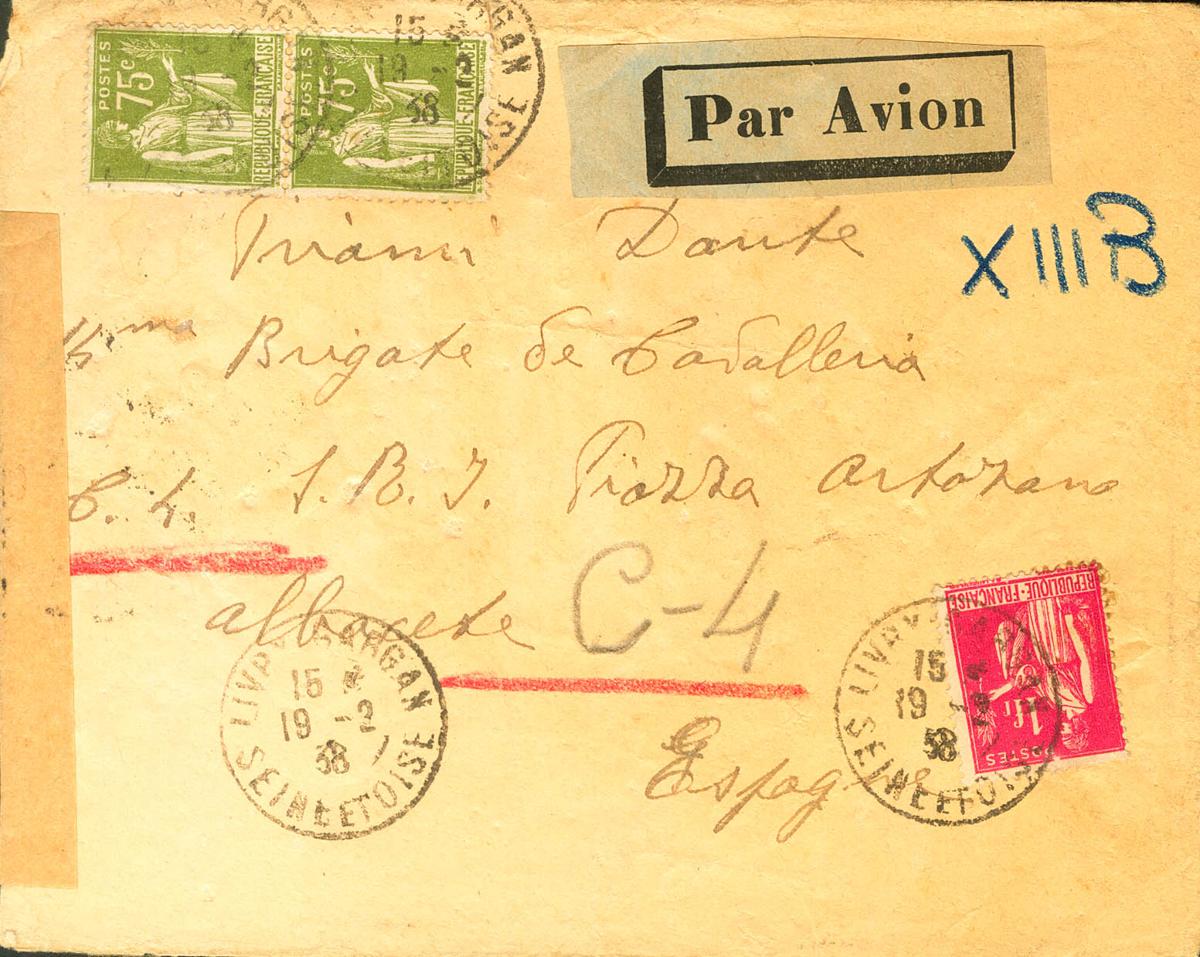 POSTES 75c. REPUBLIQUE-FRANÇAISE
POSTES 75c. REPUBLIQUE-FRANÇAISE
GARGAN
15
19 -2
38
OISE
Par Avion
XIII B
Dante
Brigate de Cavalleria
C. 4. S. B. I. Piazza
C-4
albacete
LIVRY-GARGAN
15
19 -2
38
SEINE ET OISE
Espagne
LIVRY
15
19 -2
38
SEINE ET OISE
REPUBLIQUE-FRANÇAISE
1fr
POSTES